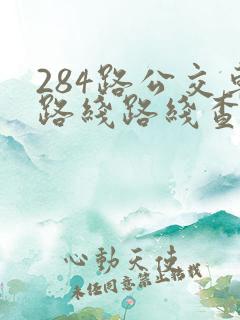 284路公交车
路线路线查
心動天使
未经同意禁止转载